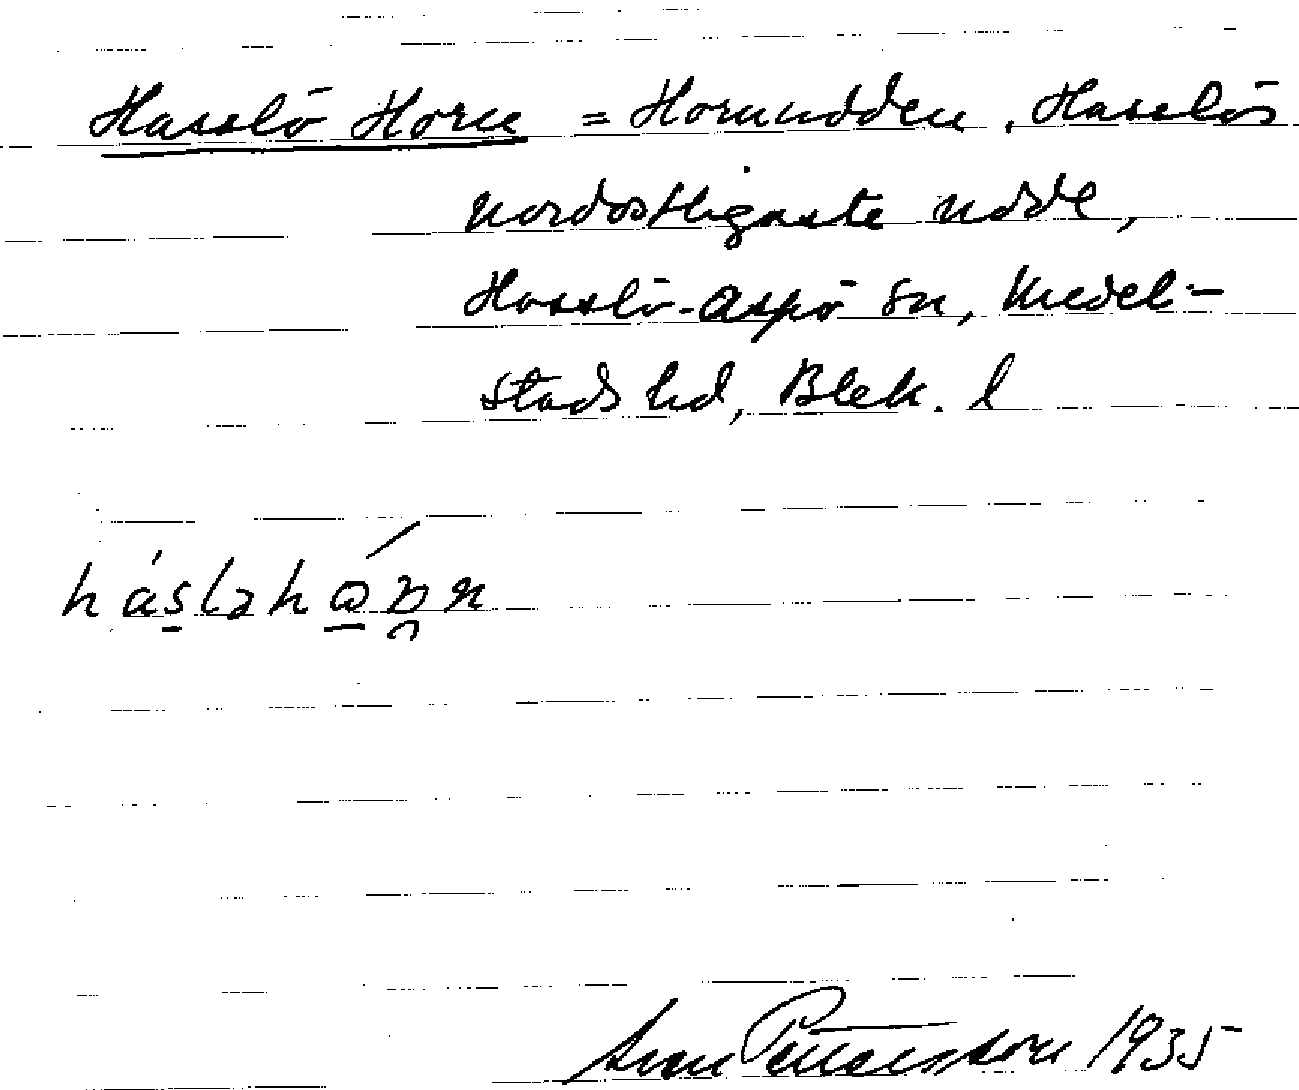 Hasslö Horn = Hornudden, Hasslös
nordostligaste udde,
Hasslö-Aspö sn, Medel-
stads hd, Blek. l
Pettersson 1935